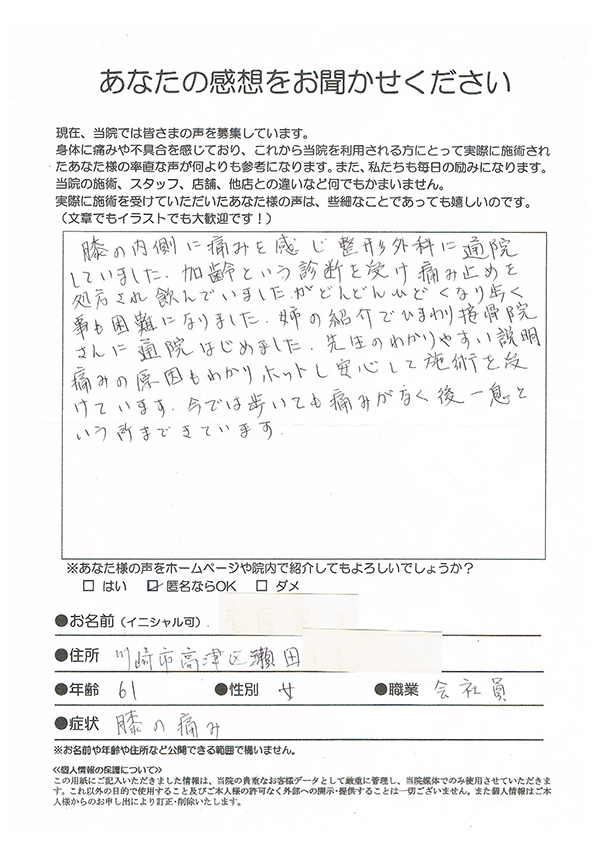 あなたの感想をお聞かせください
現在、当院では皆さまの声を募集しています。
身体に痛みや不具合を感じており、これから当院を利用される方にとって実際に施術され
たあなた様の率直な声が何よりも参考になります。また、私たちも毎日の励みになります。
当院の施術、スタッフ、店舗、他店との違いなど何でもかまいません。
実際に施術を受けていただいたあなた様の声は、些細なことであっても嬉しいのです。
（文章でもイラストでも大歓迎です！）
膝の内側に痛みを感じ整形外科に通院
していました. 加齢という診断を受け痛み止めを
処方され飲んでいましたがどんどんひどくなり歩く
事も困難になりました. 姉の紹介でひまわり接骨院
さんに通院はじめました. 先生のわかりやすい説明
痛みの原因もわかりホットし安心して施術を受
けています. 今では歩いても痛みがなく後一息と
いう所まできています.
※あなた様の声をホームページや院内で紹介してもよろしいでしょうか？
□ はい ☑ 匿名ならOK □ ダメ
●お名前（イニシャル可）.
●住所 川崎市高津区瀬田
●年齢 61 ●性別 女 ●職業 会社員
●症状 膝の痛み
※お名前や年齢や住所など公開できる範囲で構いません。
≪個人情報の保護について≫
この用紙にご記入いただきました情報は、当院の貴重なお客様データとして厳重に管理し、当院媒体でのみ使用させていただきま
す。これ以外の目的で使用すること及びご本人様の許可なく外部への開示・提供することは一切ございません。また個人情報はご本
人様からのお申し出により訂正・削除いたします。